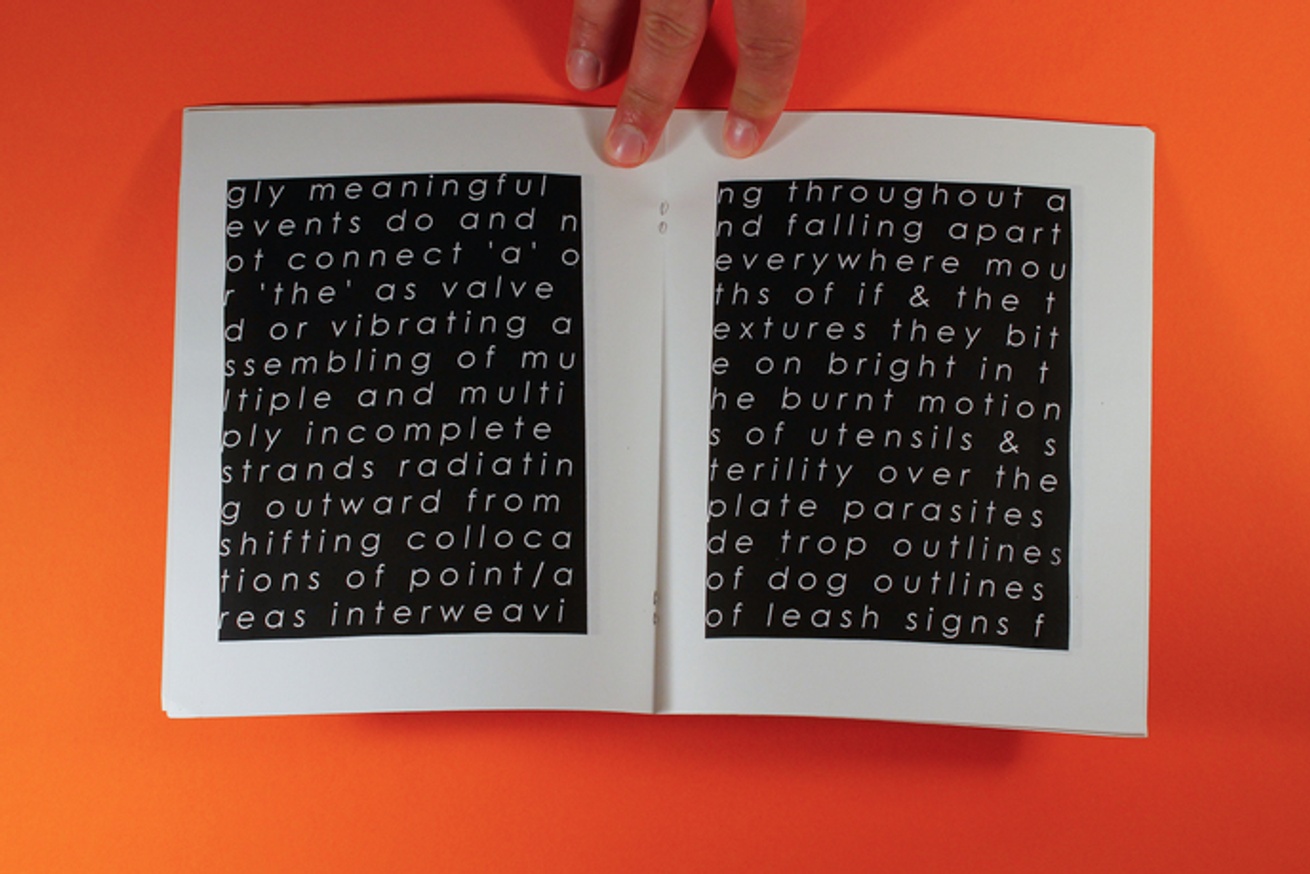 gly meaningful
events do and n
ot connect 'a' o
r 'the' as valve
d or vibrating a
ssembling of mu
ltiple and multi
ply incomplete
strands radiatin
g outward from
shifting colloca
tions of point/a
reas interweavi
ng throughout a
nd falling apart
everywhere mou
ths of if & the t
extures they bit
e on bright in t
he burnt motion
s of utensils & s
terility over the
plate parasites
de trop outlines
of dog outlines
of leash signs f